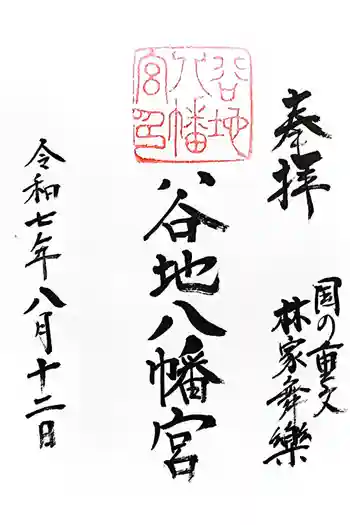 奉拝
国の重文
林家舞樂
谷地八幡宮
谷地
八幡
宮印
令和七年八月十二日